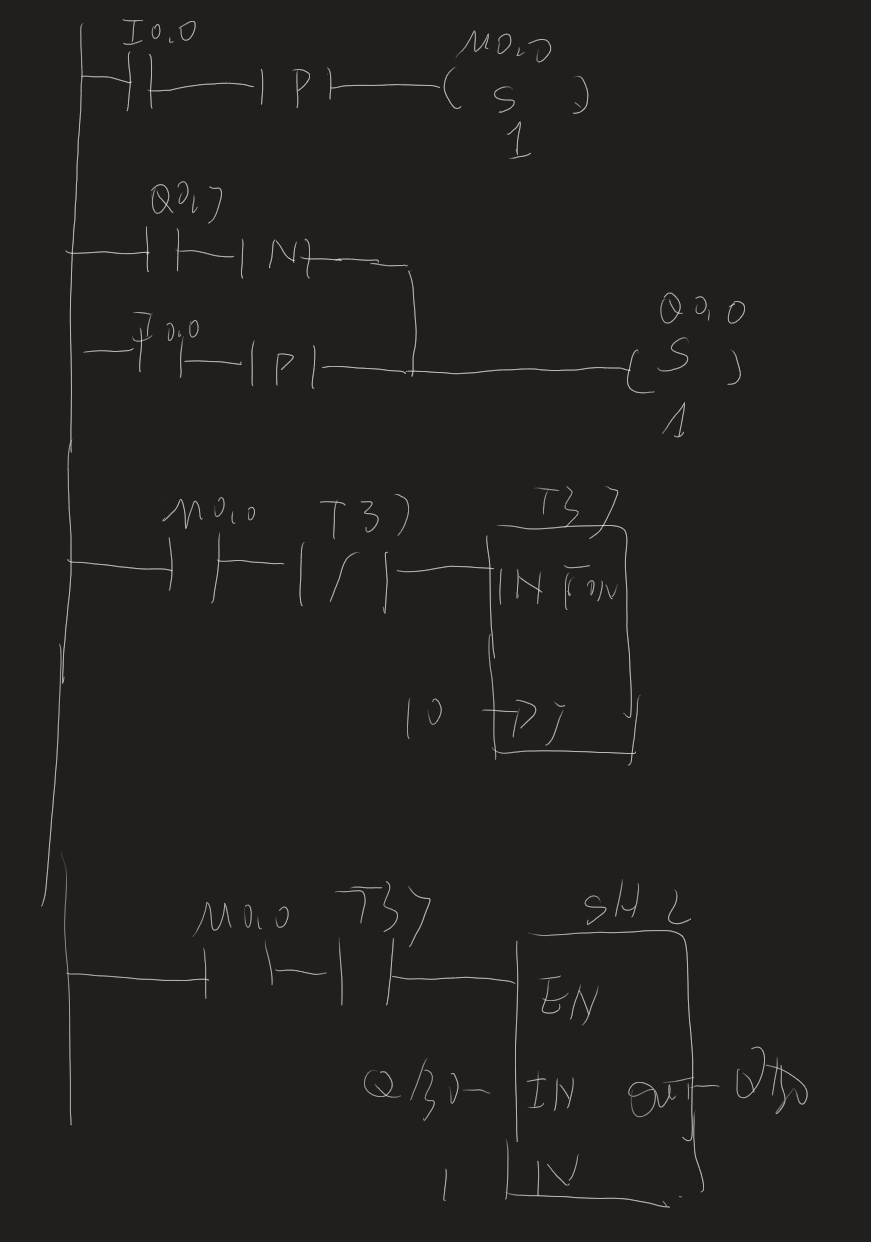 I0.0
M0.0
P
( S )
1
Q0.7
N
I0.0
P
Q0.0
( S )
1
M0.0
T37
/
T37
IN TON
10
M0.0
T37
SHL
EN
QB0
IN OUT
QB0
1
N